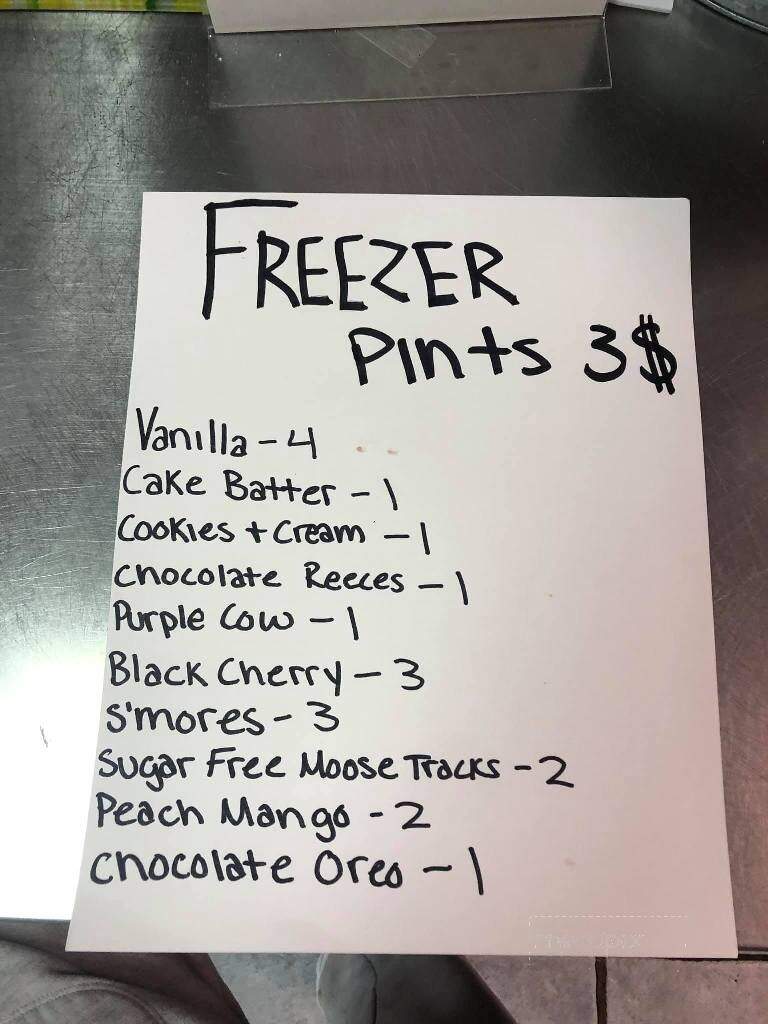 FREEZER
Pints 3$
Vanilla - 4
Cake Batter - 1
Cookies + Cream - 1
Chocolate Reeces - 1
Purple Cow - 1
Black Cherry - 3
S'mores - 3
Sugar Free Moose Tracks - 2
Peach Mango - 2
Chocolate Oreo - 1